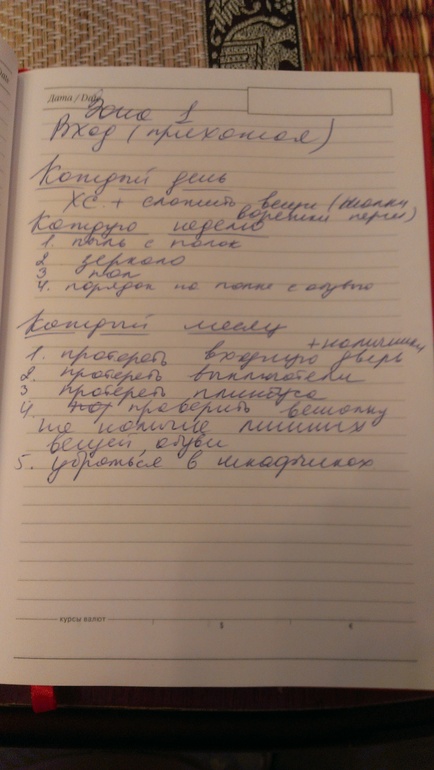 Дата / Date
Зона 1
Вход (прихожая)
Каждый день
ХС + сложить вещи (шапки
варежки перч)
Каждую неделю
1. пыль с полок
2 зеркало
3 пол
4. порядок на полке с обувью
Каждый месяц
1. протереть входную дверь + наличники
2. протереть выключатели
3 протереть плинтуса
4. проверить вешалку
на наличие лишних
вещей, обуви
5. убраться в шкафчиках
курсы валют $ €